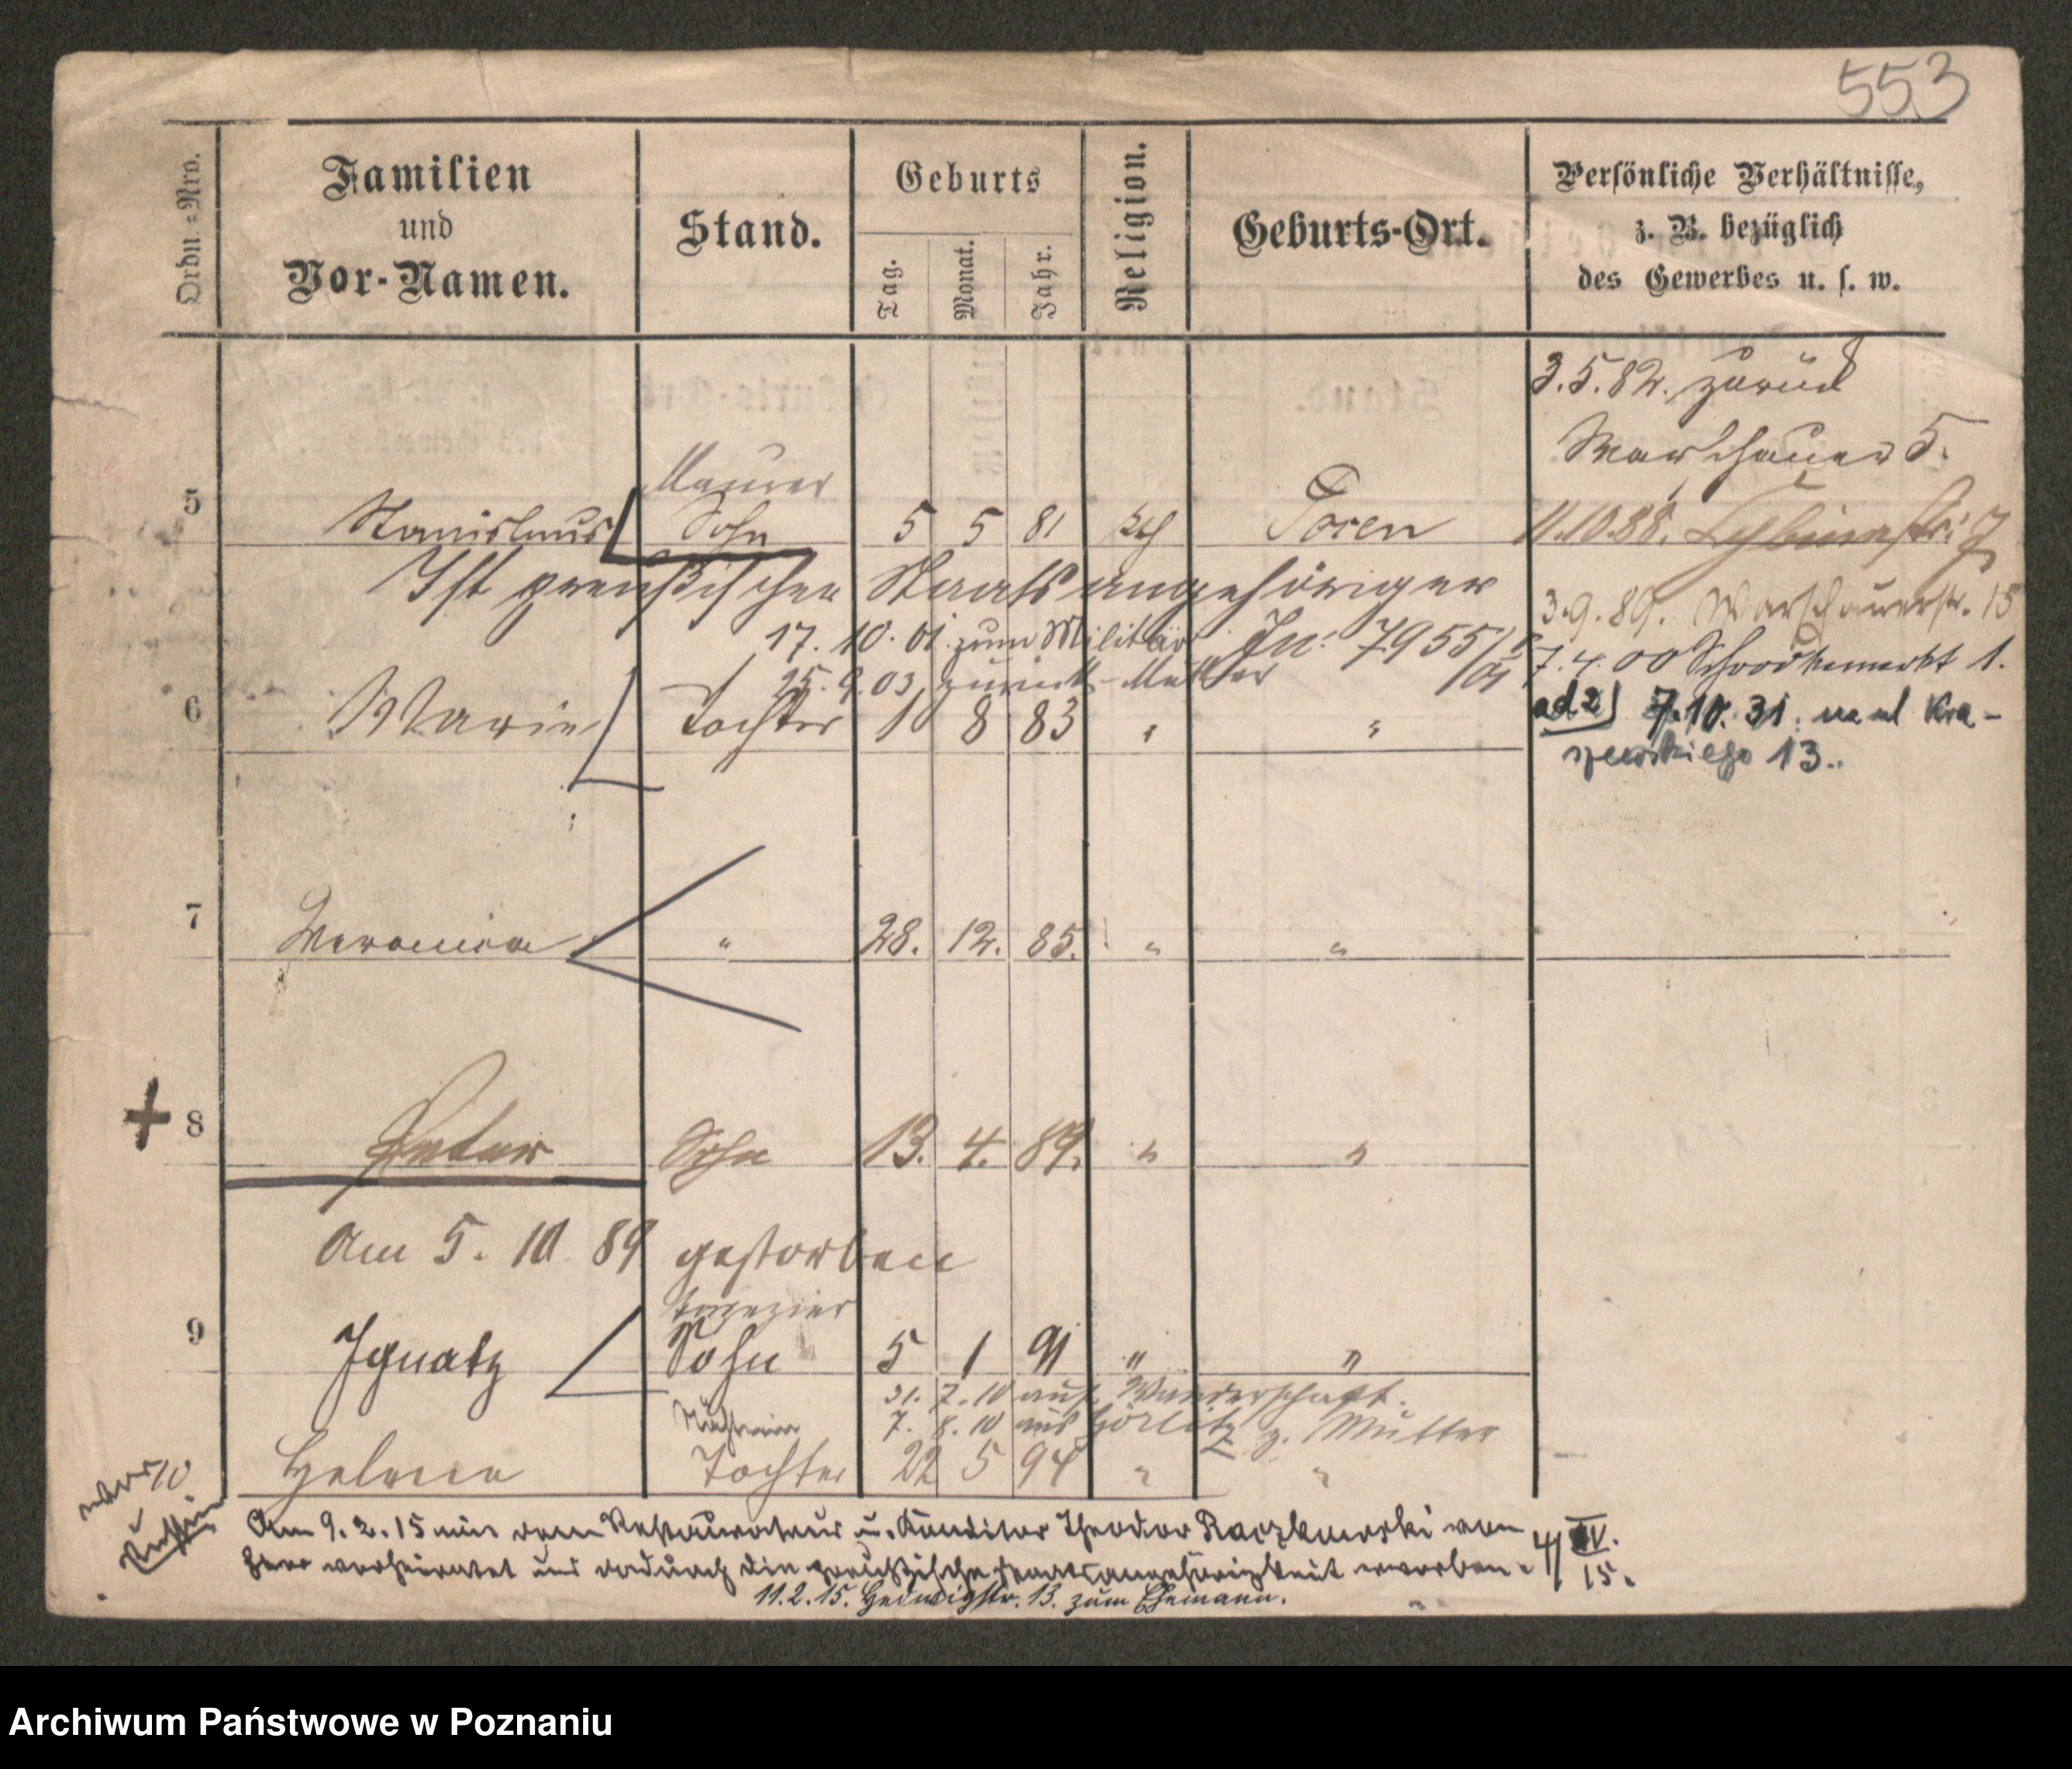 553
Ordn.=Nro.
Familien
und
Vor-Namen.
Stand.
Geburts
Tag.
Monat.
Jahr.
Religion.
Geburts-Ort.
Persönliche Verhältnisse,
z. B. bezüglich
des Gewerbes u. s. w.
3.5.82. zurück
Warschauer 5.
Maurer
5 Stanislaus Sohn 5 5 81 kth Posen
11.10.88.
Ist preußischer Staatsangehöriger
3.9.89. Warschauerstr. 15
17. 10. 01 zum Militär Jn: 7955/
7.4.00 Schrodkamarkt 1.
25. 9. 03 zurück Mutter
6 Marie Tochter 10 8 83 " "
ad 2) 7.10.31. na ul Kra-
szewskiego 13..
7 Veronica " 28. 12. 85. " "
+ 8 Peter Sohn 13. 4. 89. " "
Am 5. 10 89 gestorben
Tapezier
9 Ignatz Sohn 5 1 91 " "
31. 7. 10 auf Wanderschaft.
7. 8. 10 aus Görlitz z. Mutter
Näherin
10 Helena Tochter 22 5 94 " "
war
Russin
Am 9. 2. 15 mit dem Restaurateur u. Konditor Theodor Raczkowski von
hier verheiratet und dadurch die preußische Staatsangehörigkeit erworben. 4/IV. 15.
11.2.15. Hedwigstr. 13. zum Ehemann.
Archiwum Państwowe w Poznaniu